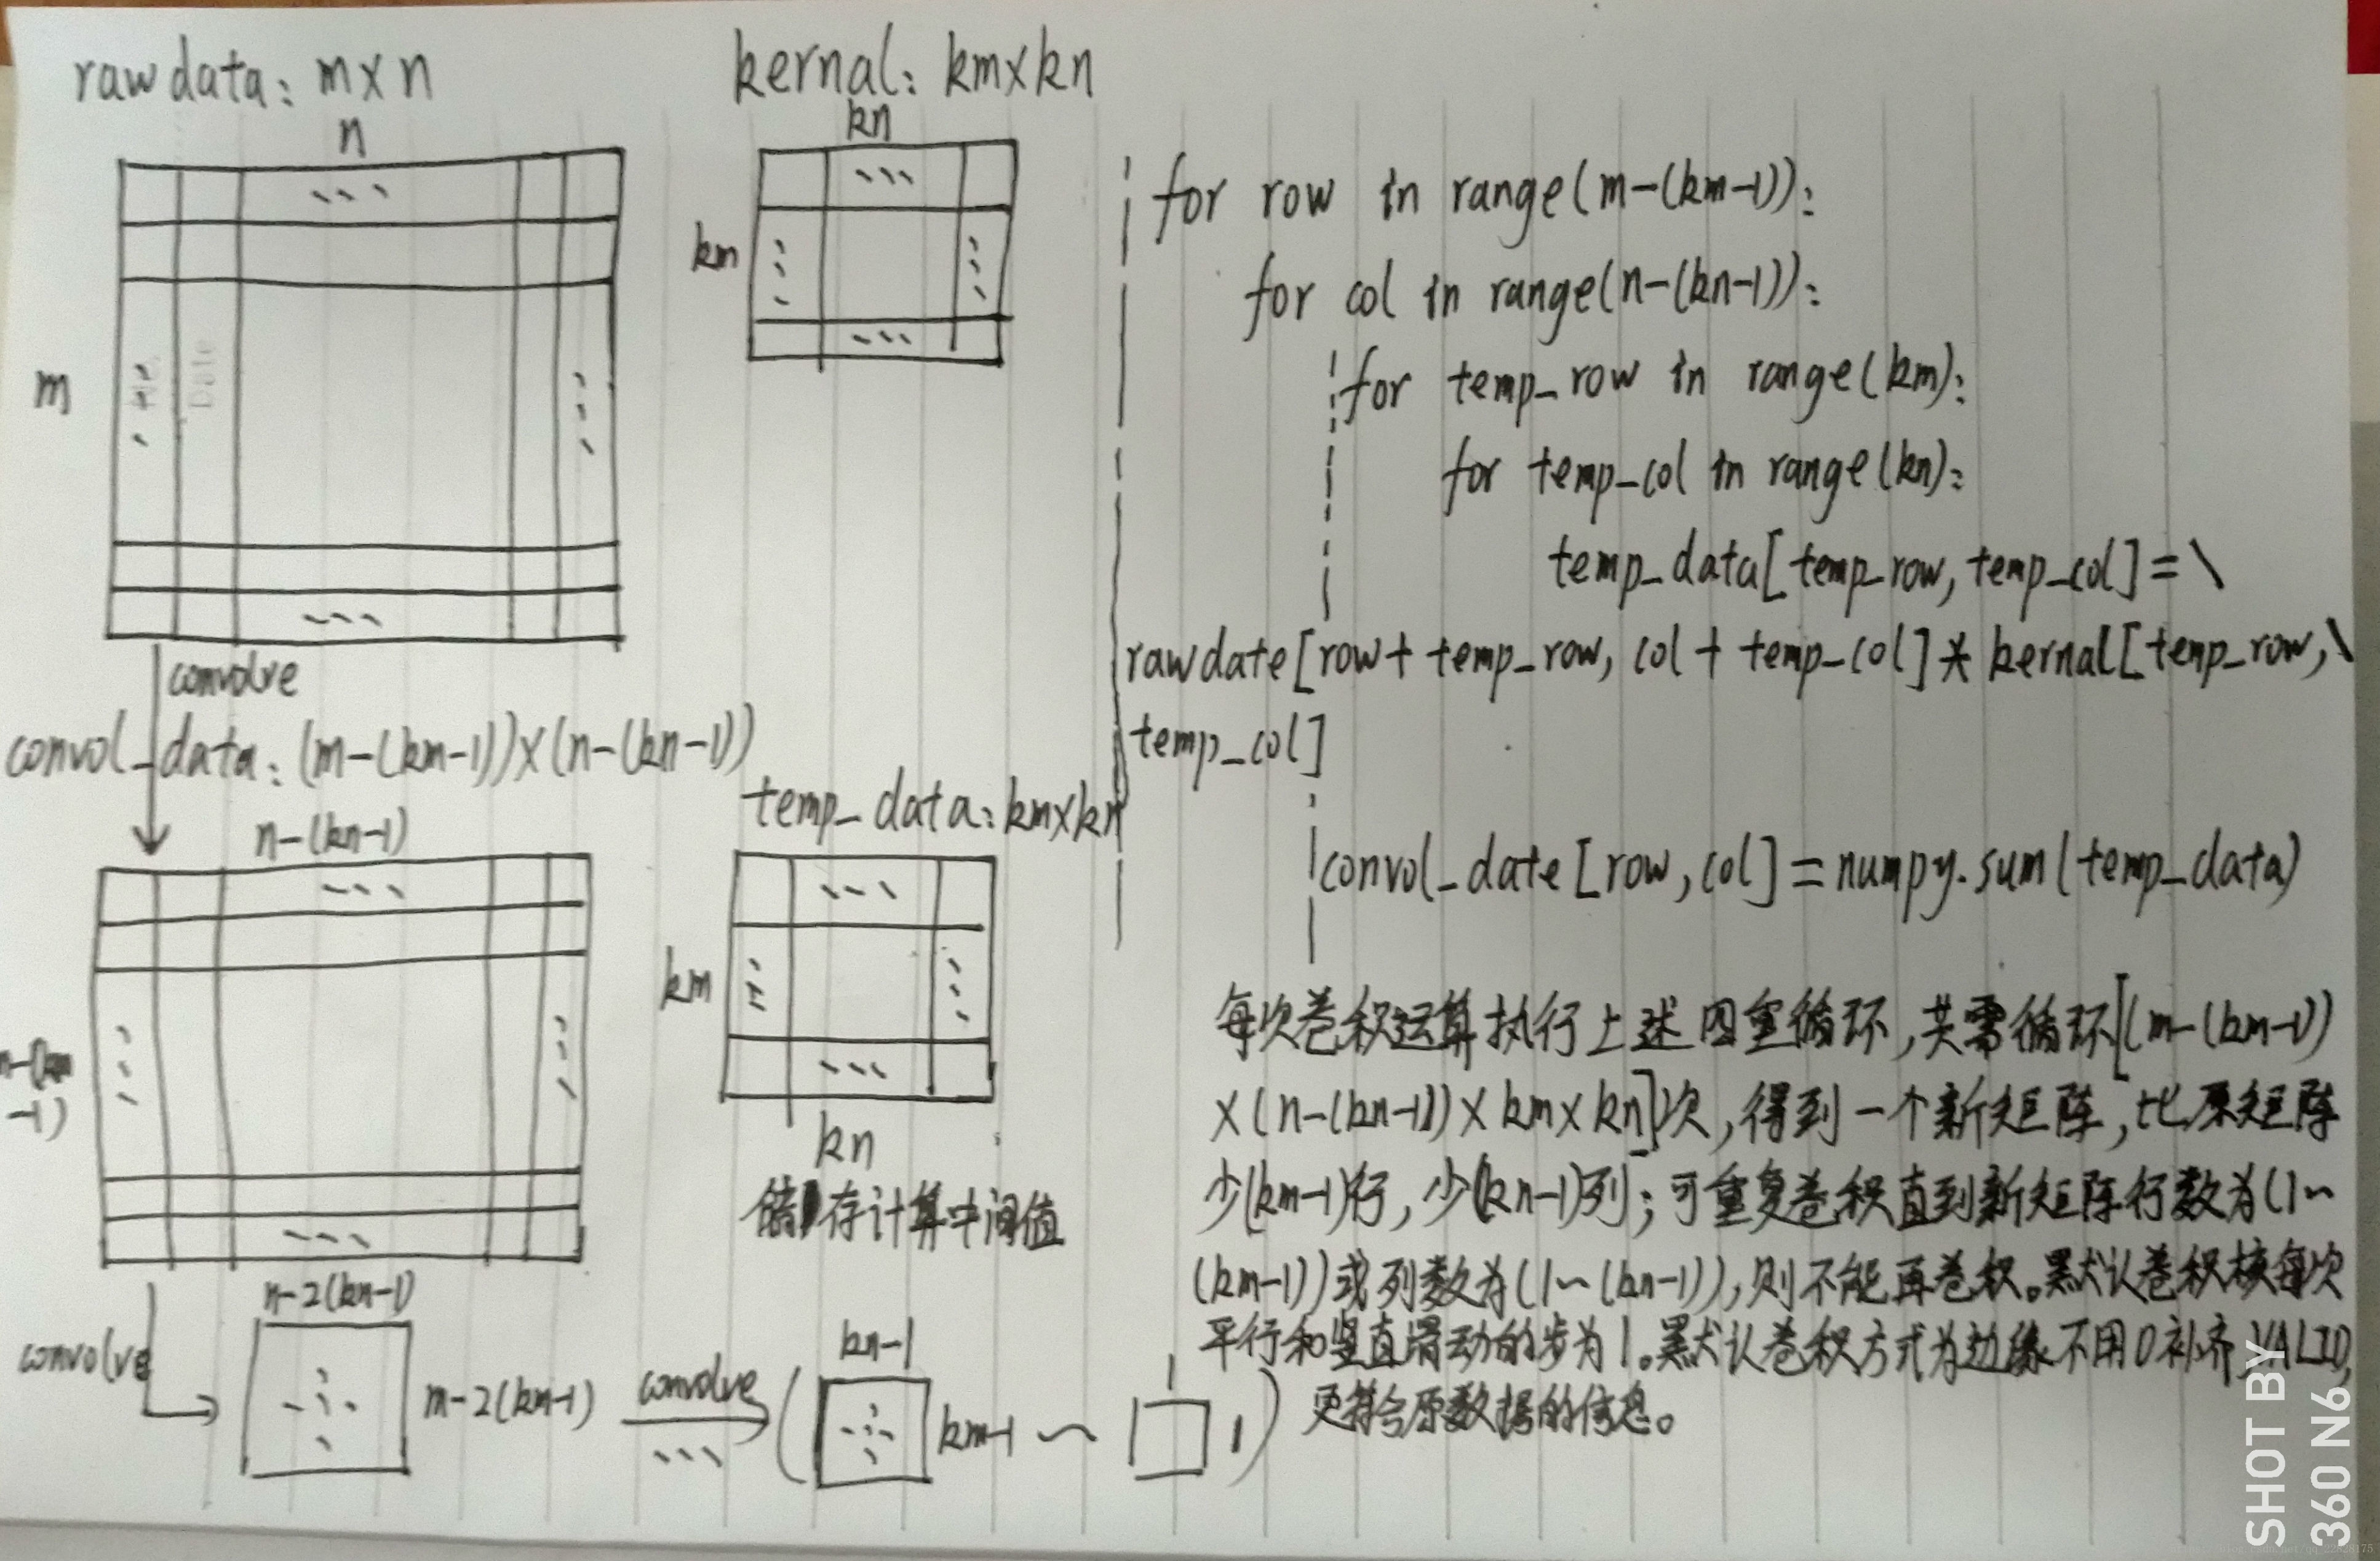 rawdata: m×n
n
m
convolve
convol_data: (m-(km-1))×(n-(kn-1))
n-(kn-1)
-1)
convolve
n-2(kn-1)
m-2(km-1)
convolve
kn-1
km-1 ~
1
1
kernal: km×kn
kn
km
temp_data: km×kn
km
kn
储存计算中间值
for row in range(m-(km-1)):
for col in range(n-(kn-1)):
for temp_row in range(km):
for temp_col in range(kn):
temp_data[temp_row, temp_col]=\
rawdate[row+temp_row, col+temp_col]*kernal[temp_row,\
temp_col]
convol_date[row,col]=numpy.sum(temp_data)
每次卷积运算执行上述四重循环,共需循环[(m-(km-1)
×(n-(kn-1))×km×kn]次,得到一个新矩阵,比原矩阵
少(km-1)行,少(kn-1)列;可重复卷积直到新矩阵行数为(1~
(km-1))或列数为(1~(kn-1)),则不能再卷积。默认卷积核每次
平行和竖直滑动的步为1。默认卷积方式为边缘不用0补齐,VALID,
更符合原数据的信息。
Date
SHOT BY
360 N6